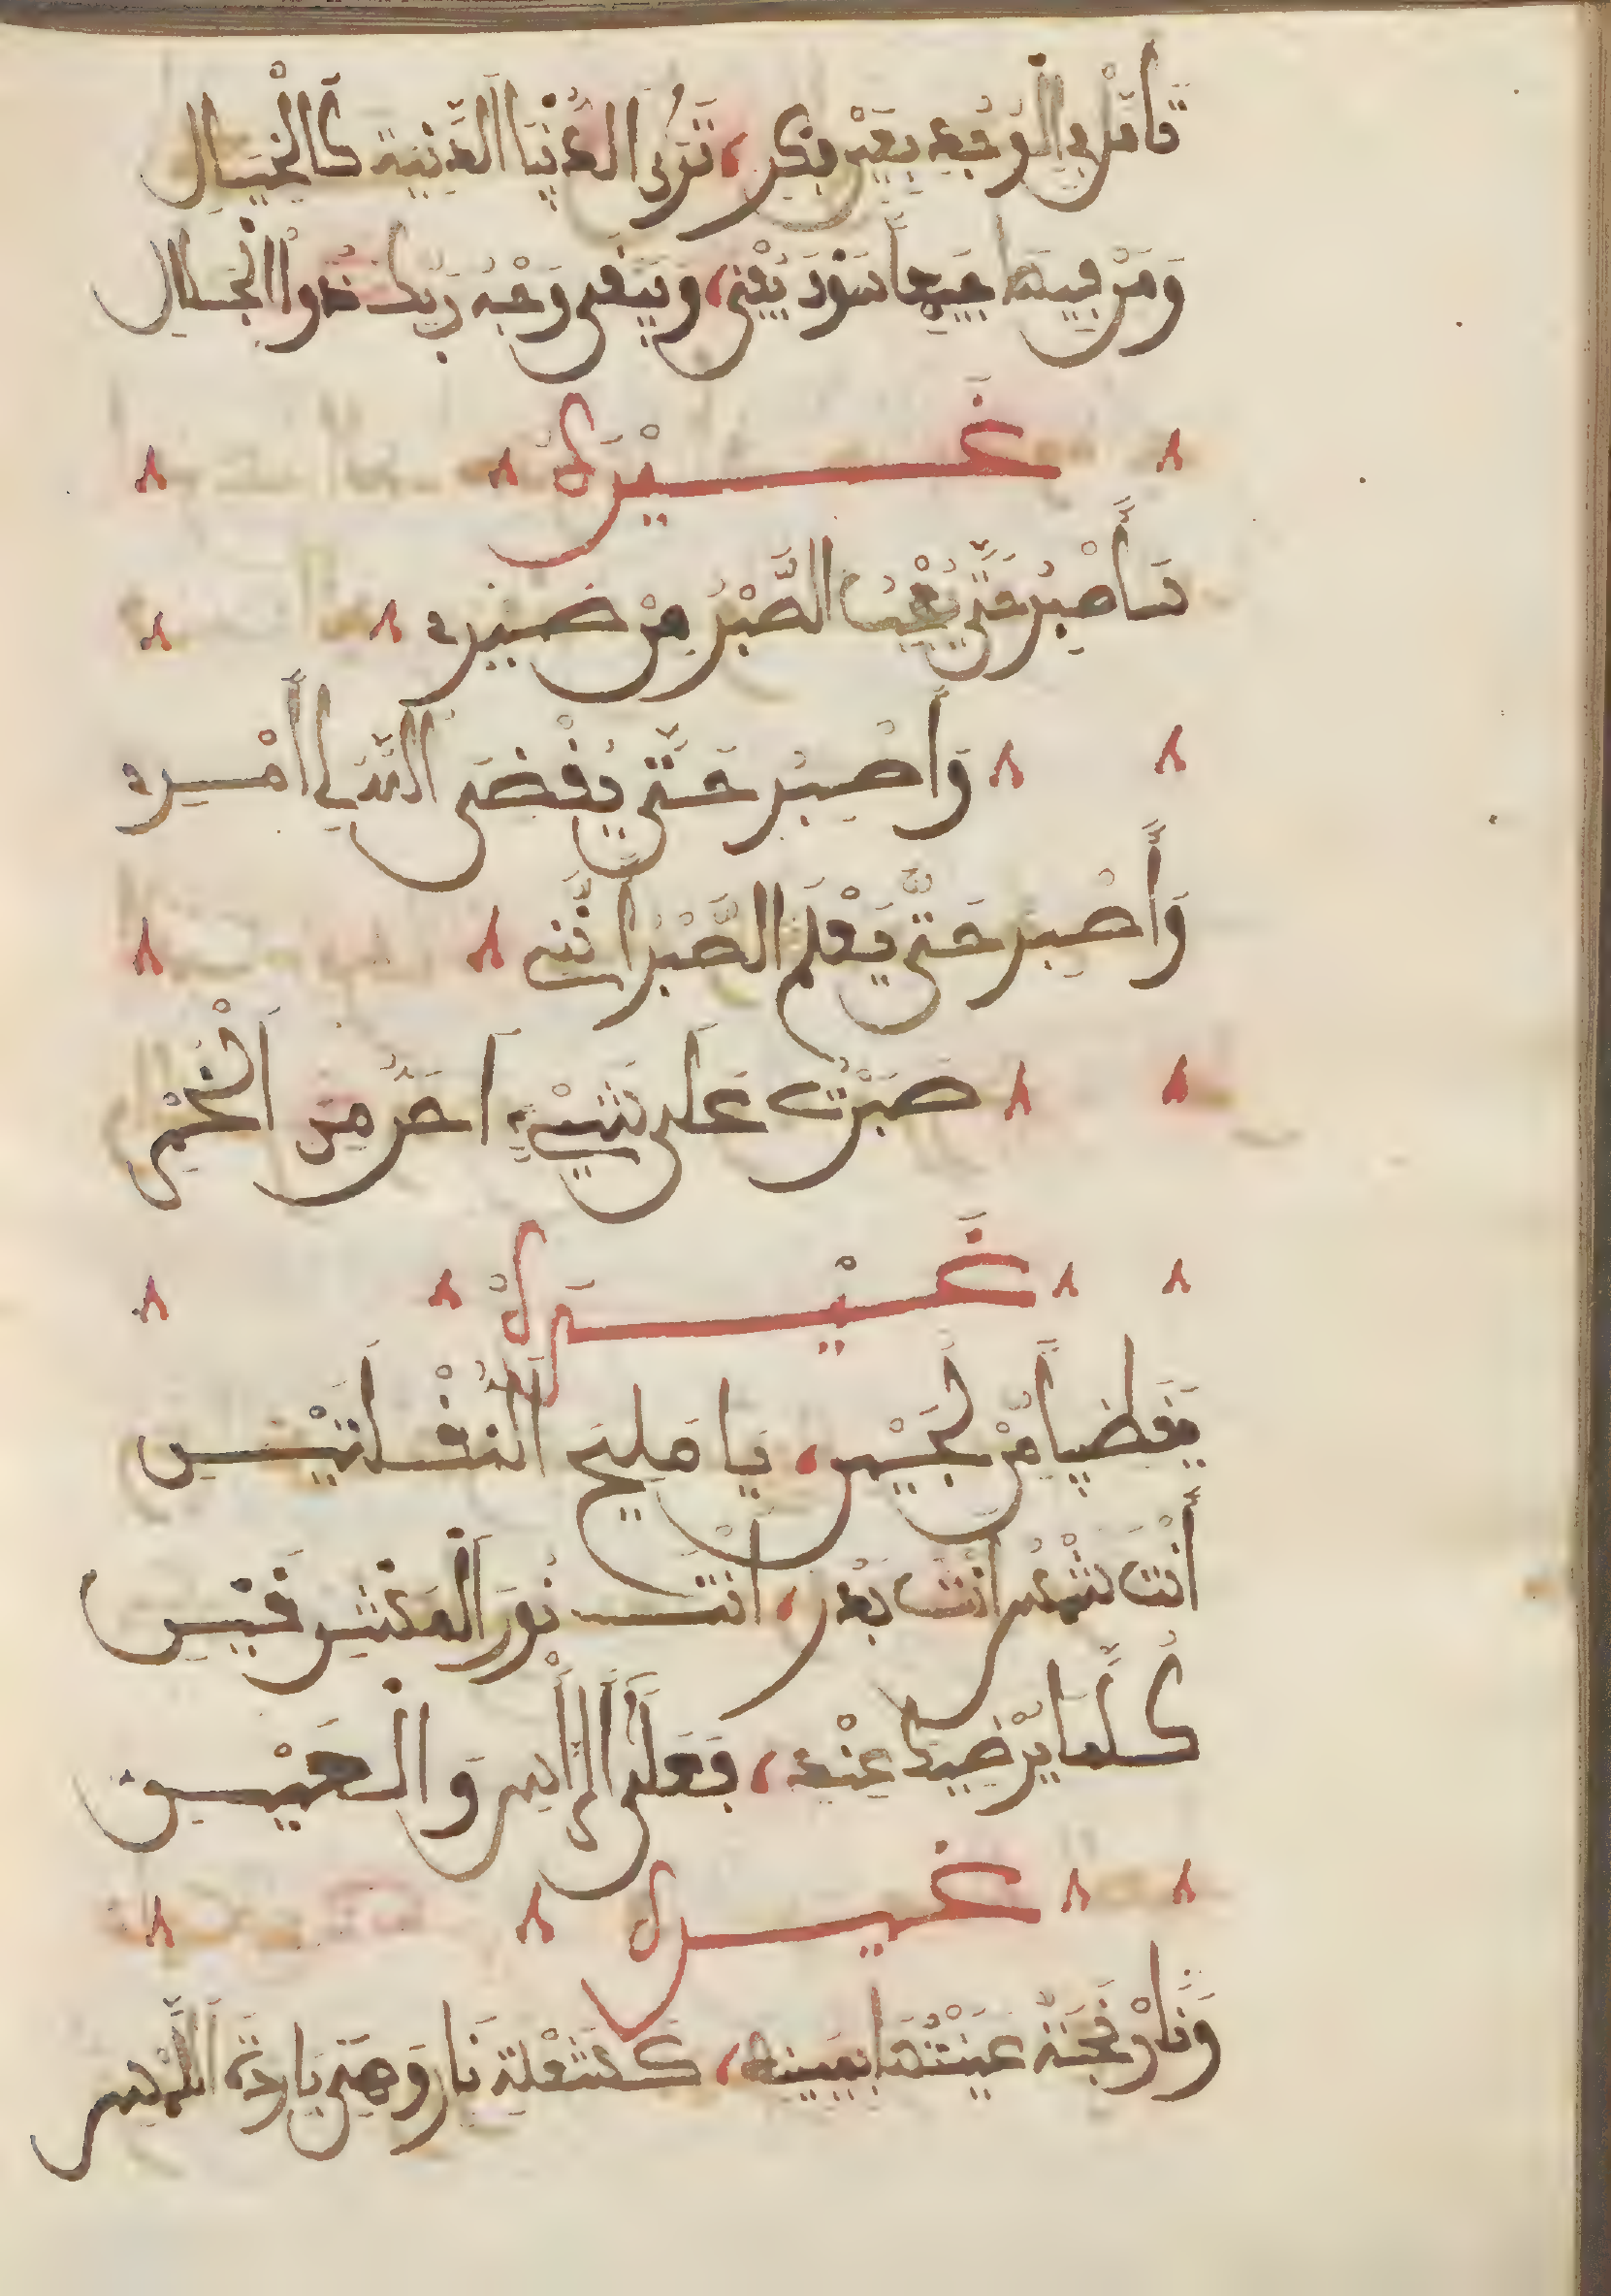 تَأَمَّلْ فِي الْوُجُودِ بِعَيْنِ فِكْرٍ ، تَرَى الدُّنْيَا الدَّنِيَةَ كَالْخَيَالِ
وَمَنْ فِيهَا جَمِيعاً سَوْفَ يَفْنَى ، وَيَبْقَى وَجْهُ رَبِّكَ ذُوا الْجَلَالِ
غَيْرُهُ
سَأَصْبِرُ حَتَّى يَعْجِبُ الصَّبْرُ مِنْ صَبْرِي
وَأَصْبِرُ حَتَّى يُقْضَى اللَّهُ لِي أَمْرِي
وَأَصْبِرُ حَتَّى يَعْلَمَ الصَّبْرُ أَنَّنِي
صَبَرْتُ عَلَى شَيْءٍ أَحَرَّ مِنَ الْجَمْرِ
غَيْرُهُ
يَقَضِيباً مِنْ لُجَيْنٍ ، يَا مَلِيحَ الْمُقْلَتَيْنِ
أَنْتَ شَمْسٌ أَنْتَ بَدْرٌ ، أَنْتَ نُورَ الْمَشْرِقَيْنِ
كُلَّمَا يُرْضِيكَ عِنْدِي ، فَعَلَى الرَّأْسِ وَالْعَيْنِ
غيره
وَنَارَنْجَنَةٍ عَيَنْتُهَا بِيَمِينِهَا ، كَشُعْلَةِ نَارٍ وَهِيَ بَارِدَةُ اللَّمْسِ